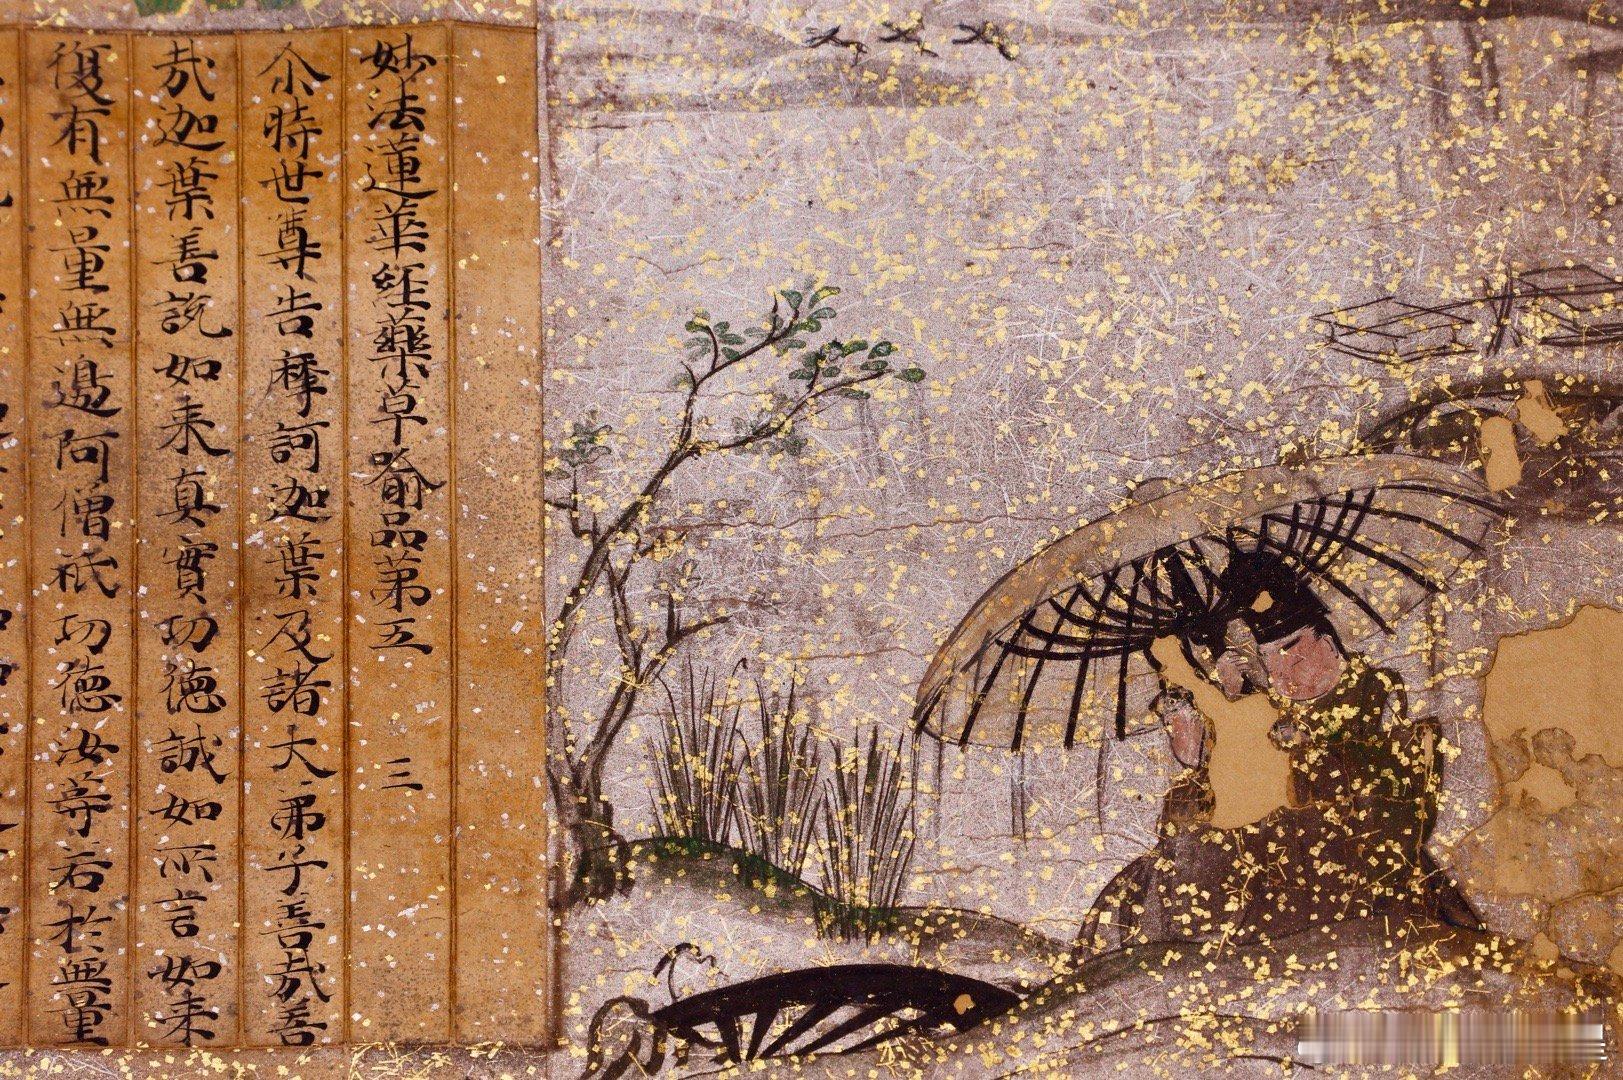 妙法蓮華経藥草喻品第五　三
尒時世尊告摩訶迦葉及諸大弟子善哉善
哉迦葉善説如来真實功徳誠如所言如来
復有無量無邊阿僧祇功徳汝等若於無量